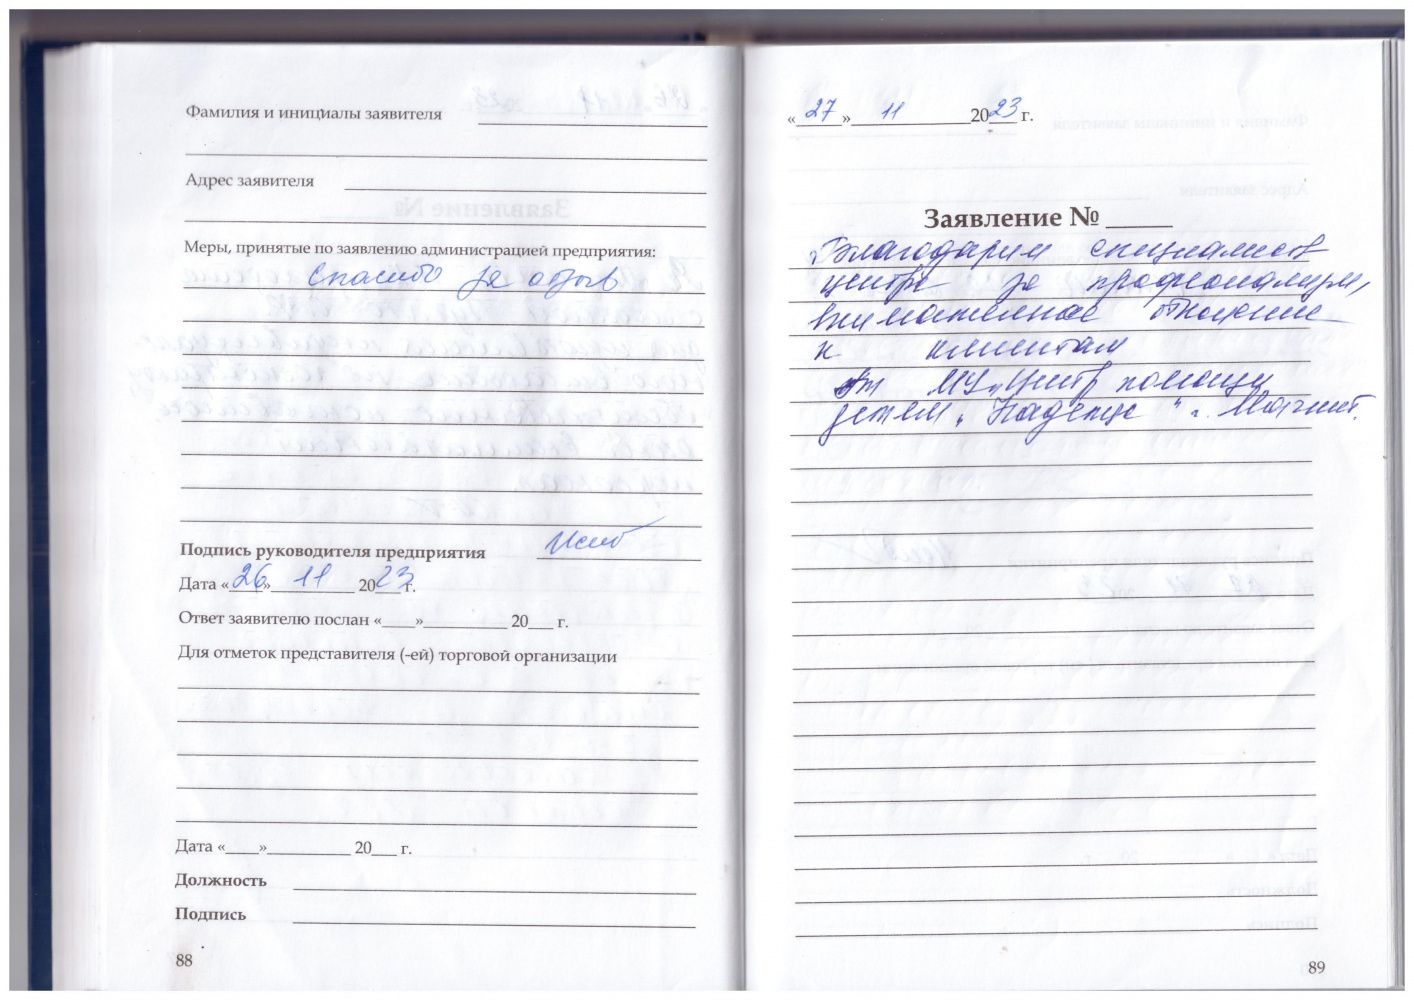 Фамилия и инициалы заявителя
Адрес заявителя
Меры, принятые по заявлению администрацией предприятия:
Спасибо за отзыв
Подпись руководителя предприятия
Дата «26» 11 2023 г.
Ответ заявителю послан «____»__________ 20___ г.
Для отметок представителя (-ей) торговой организации
Дата «____»__________ 20___ г.
Должность
Подпись
88
«27» 11 2023 г.
Заявление № _____
Благодарим специалистов
центра за
внимательное отношение
к клиентам
от МУ "Центр помощи
детям "Надежда" г. Магнит.
89